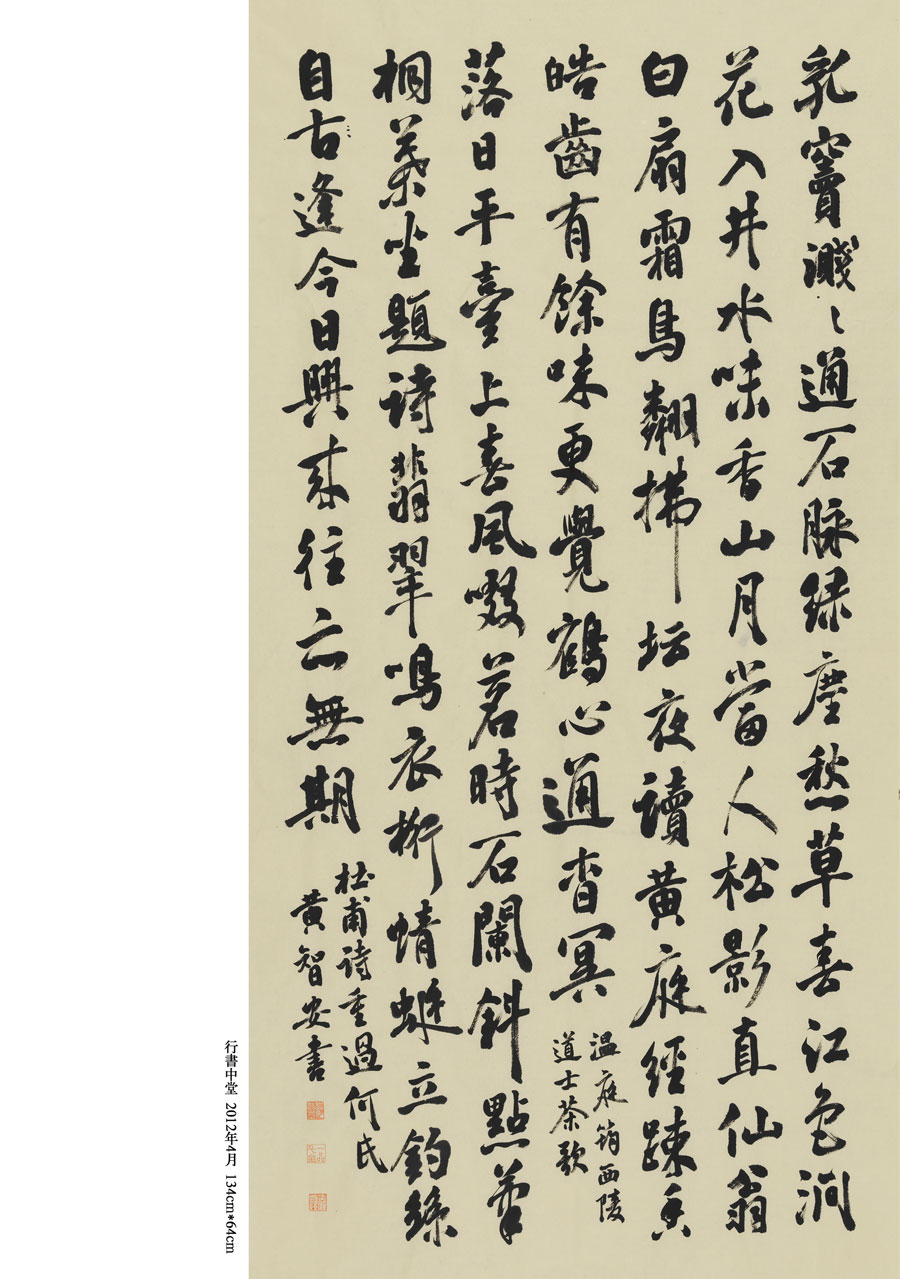 乳竇濺々通石脉绿塵愁草春江色澗
花入井水味香山月當人松影直仙翁
白扇霜鳥翻拂坛夜讀黄庭經疎香
皓齒有餘味更覺鶴心通杳冥
温庭筠西陵
道士茶歌
落日平臺上春風啜茗時石闌斜點筆
桐葉坐題诗翡翠鳴衣桁蜻蜓立钓絲
自古逢今日興来往亦無期
杜甫诗重過何氏
黄智安書
行書中堂 2012年4月 134cm*64cm